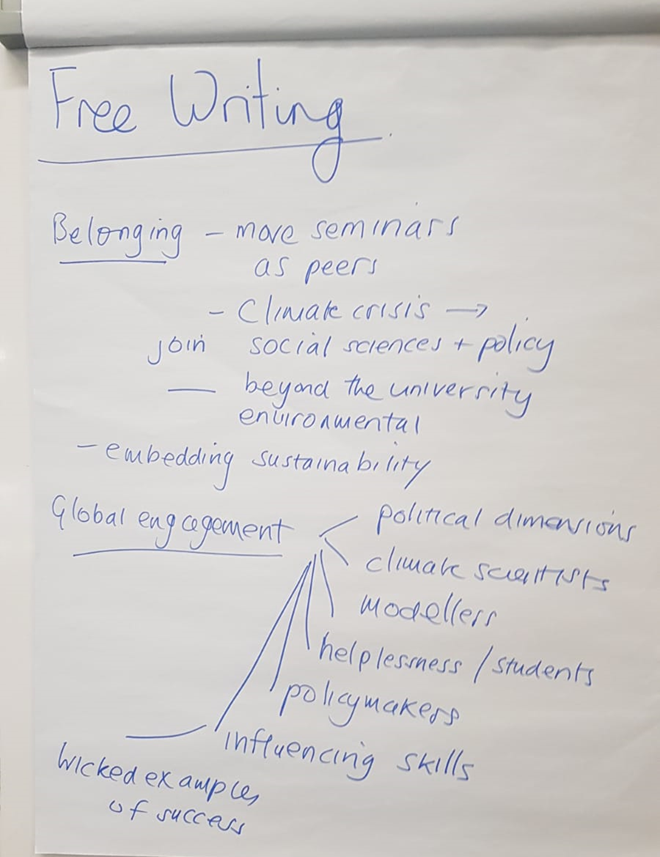 Free Writing
Belonging - more seminars
as peers
- Climate crisis →
join social sciences + policy
— beyond the university
environmental
- embedding sustainability
Global engagement
political dimensions
climate scientists
modellers
helplessness / students
policymakers
influencing skills
wicked examples
of success